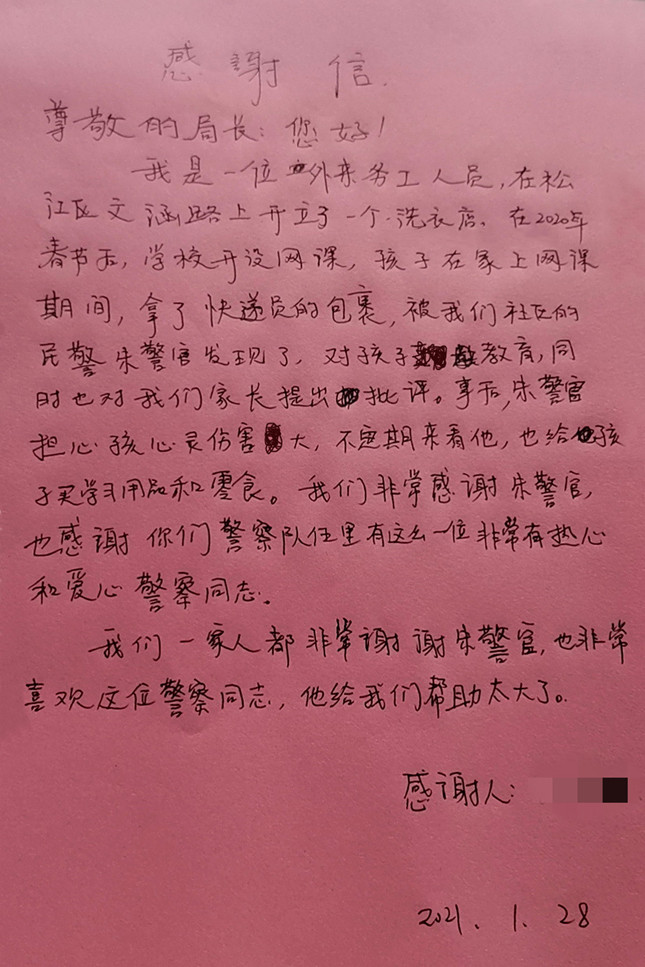 感谢信.
尊敬的局长:您好!
我是一位外来务工人员,在松
江区文涵路上开立了一个洗衣店。在2020年
春节后,学校开设网课,孩子在家上网课
期间,拿了快递员的包裹,被我们社区的
民警朱警官发现了,对孩子教育,同
时也对我们家长提出批评。事后,朱警官
担心孩心灵伤害大,不定期来看他,也给孩
子买学习用品和零食。我们非常感谢朱警官,
也感谢你们警察队伍里有这么一位非常有热心
和爱心警察同志。
我们一家人都非常谢谢朱警官,也非常
喜欢这位警察同志,他给我们帮助太大了。
感谢人:
2021.1.28